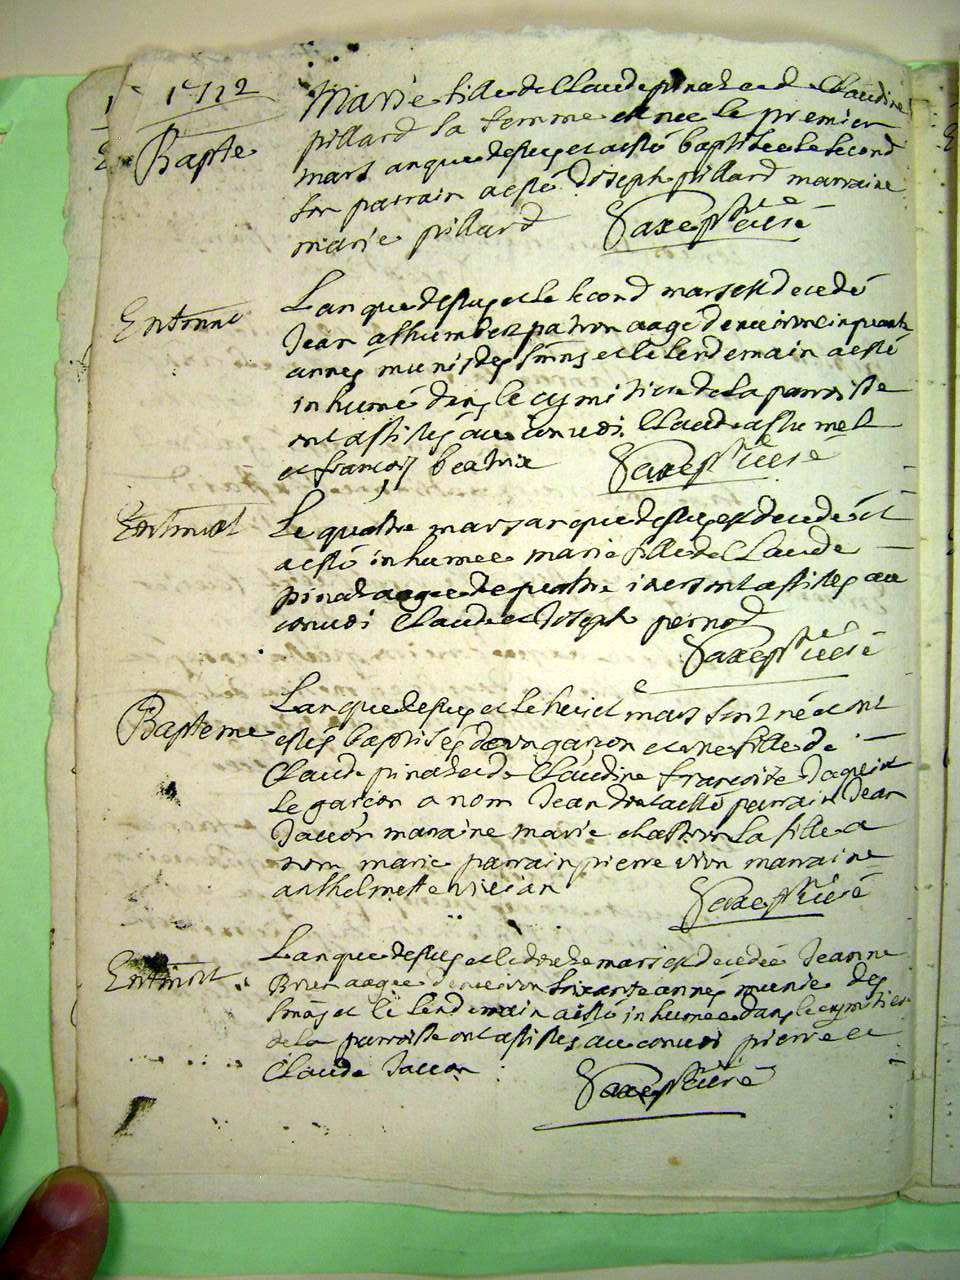 1722
Bapte
Marie fille de Claude pinaz et de Claudine
pillard sa femme est nee le premier
mars an que dessus et a esté baptisée le second
son parrain a esté Joseph pillard marraine
marie pillard
Saxe pbre curé
Enterremt
L'an que dessus et le second mars est decedé
Jean patron aagé d'environ cinquante
annes muni des Smns et le lendemain a esté
inhumé dans le cymitiere de la parroisse
ont assistés au convoi Claude
et françois beatrix
Saxe pbre curé
Enterremt
Le quatre mars an que dessus est decedé et
a esté inhumee marie fille de Claude
pinaz aagee de quatre iours ont assistes au
convoi Claude et Joseph pernod
Saxe pbre curé
Bapteme
L'an que dessus et le huict mars sont né et ont
estes baptises un garçon et une fille de
Claude pinaz et de Claudine françoise Jaquin
le garçon a nom Jean dont a esté parrain Jean
Jaccon maraine marie la fille a
nom marie parrain pierre marraine
anthelmette vivian
Saxe pbre curé
Enterremt
L'an que dessus et le douze mars est decedée Jeanne
aagee d'environ soixante annes munie des
Smns et le lendemain a esté inhumée dans le cymitiere
de la parroisse ont assistes au convoi pierre et
Claude Jaccon
Saxe pbre curé